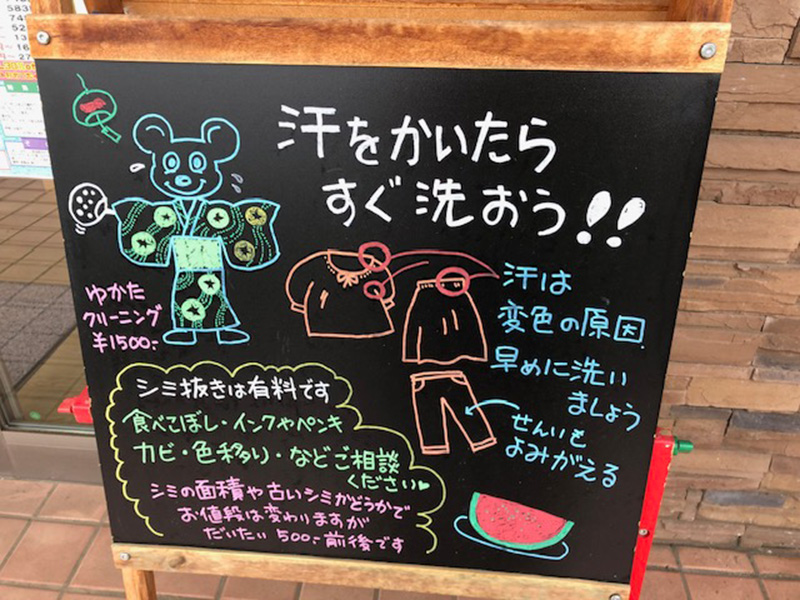 汗をかいたら
すぐ洗おう!!
ゆかた
クリーニング
¥1500-
汗は
変色の原因
早めに洗い
ましょう
せんいも
よみがえる
シミ抜きは有料です
食べこぼし・インクやペンキ
カビ・色移り・などご相談
ください♥
シミの面積や古いシミかどうかで
お値段は変わりますが
だいたい500-前後です